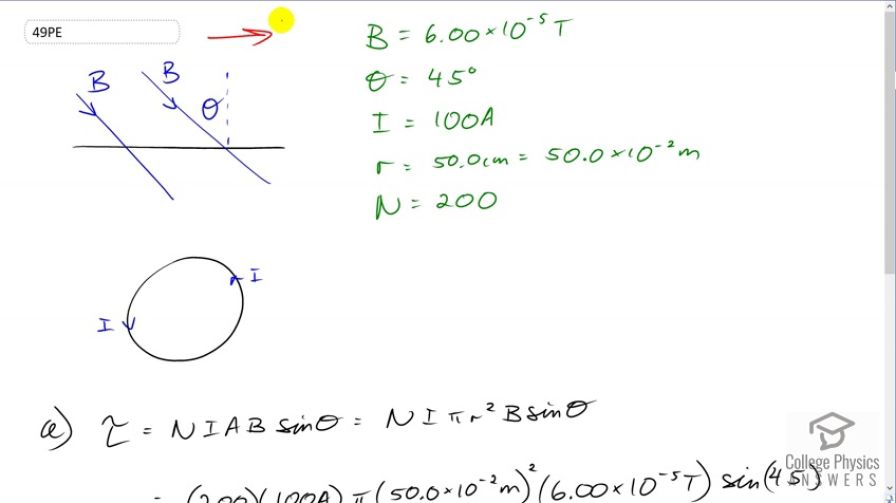 49PE
B = 6.00 × 10⁻⁵ T
B B θ
θ = 45°
I = 100A
r = 50.0cm = 50.0 × 10⁻² m
N = 200
I
I
a) τ = NIAB sinθ = NIπr² B sinθ
= (200)(100A) π (50.0 × 10⁻² m)² (6.00 × 10⁻⁵ T) sin(45)
College Physics
ANSWERS